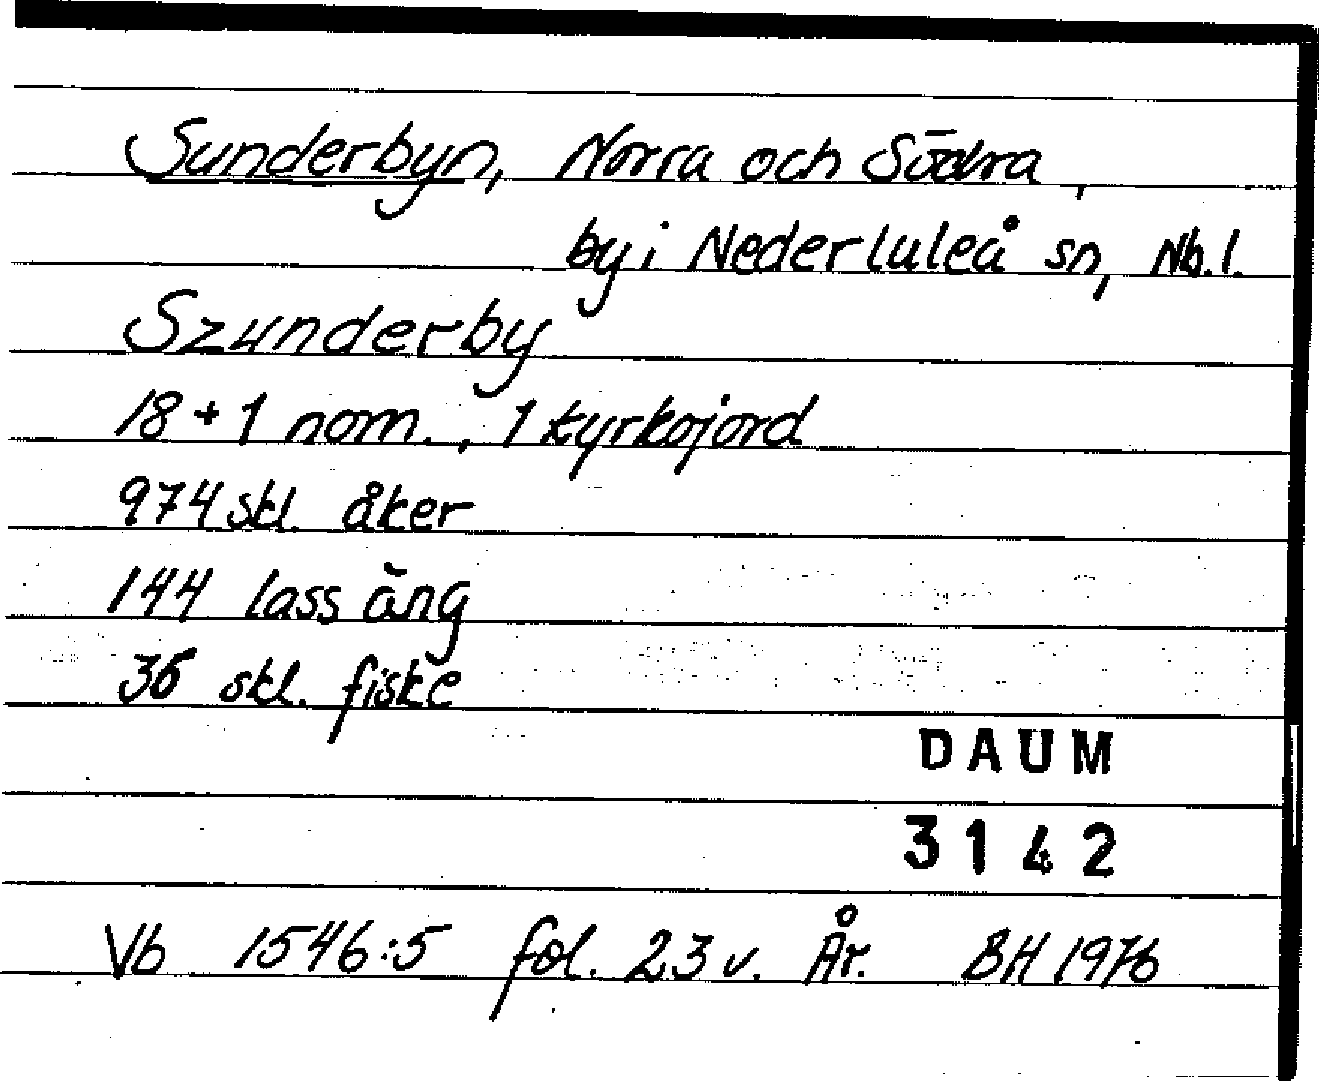 Sunderbyn, Norra och Södra,
by i Nederluleå sn, Nb. l.
Szunderby
18 + 1 nom., 1 kyrkojord
974 skl. åker
144 lass äng
36 skl. fiske
DAUM
3142
Vb 1546:5 fol. 23 v. År. BH 1976